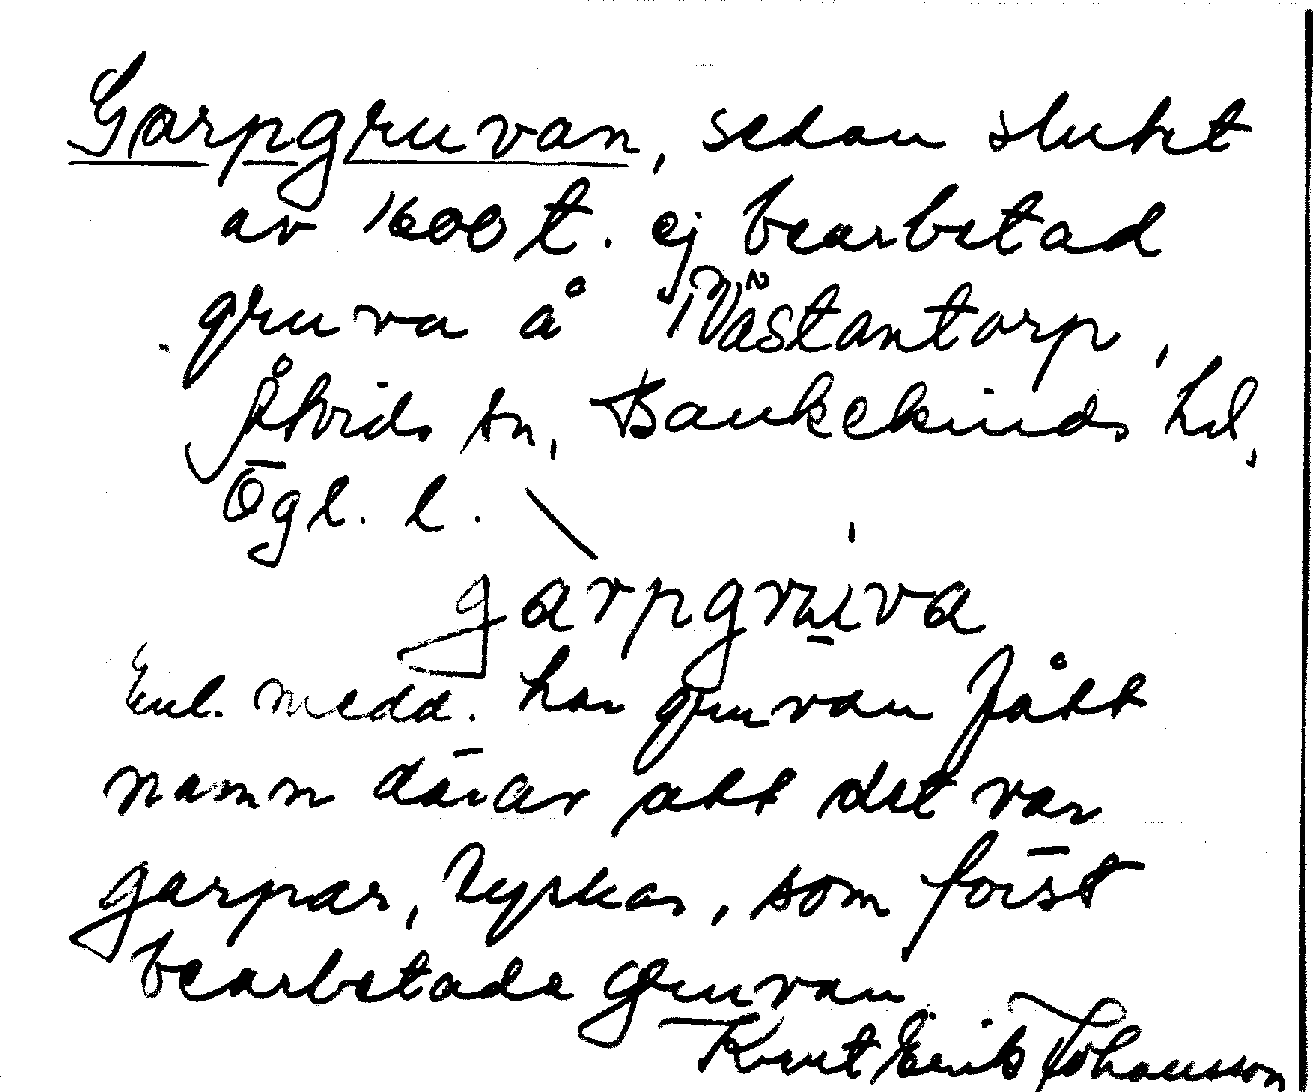 Garpgruvan, sedan slutet
av 1600 t. ej bearbetad
gruva å Västantorp,
Åtvids sn, Bankekinds hd,
Ögl. l.
garpgruva
Enl. medd. har gruvan fått
namn därav att det var
garpar, tyskar, som först
bearbetade gruvan
Kurt Erik Johansson